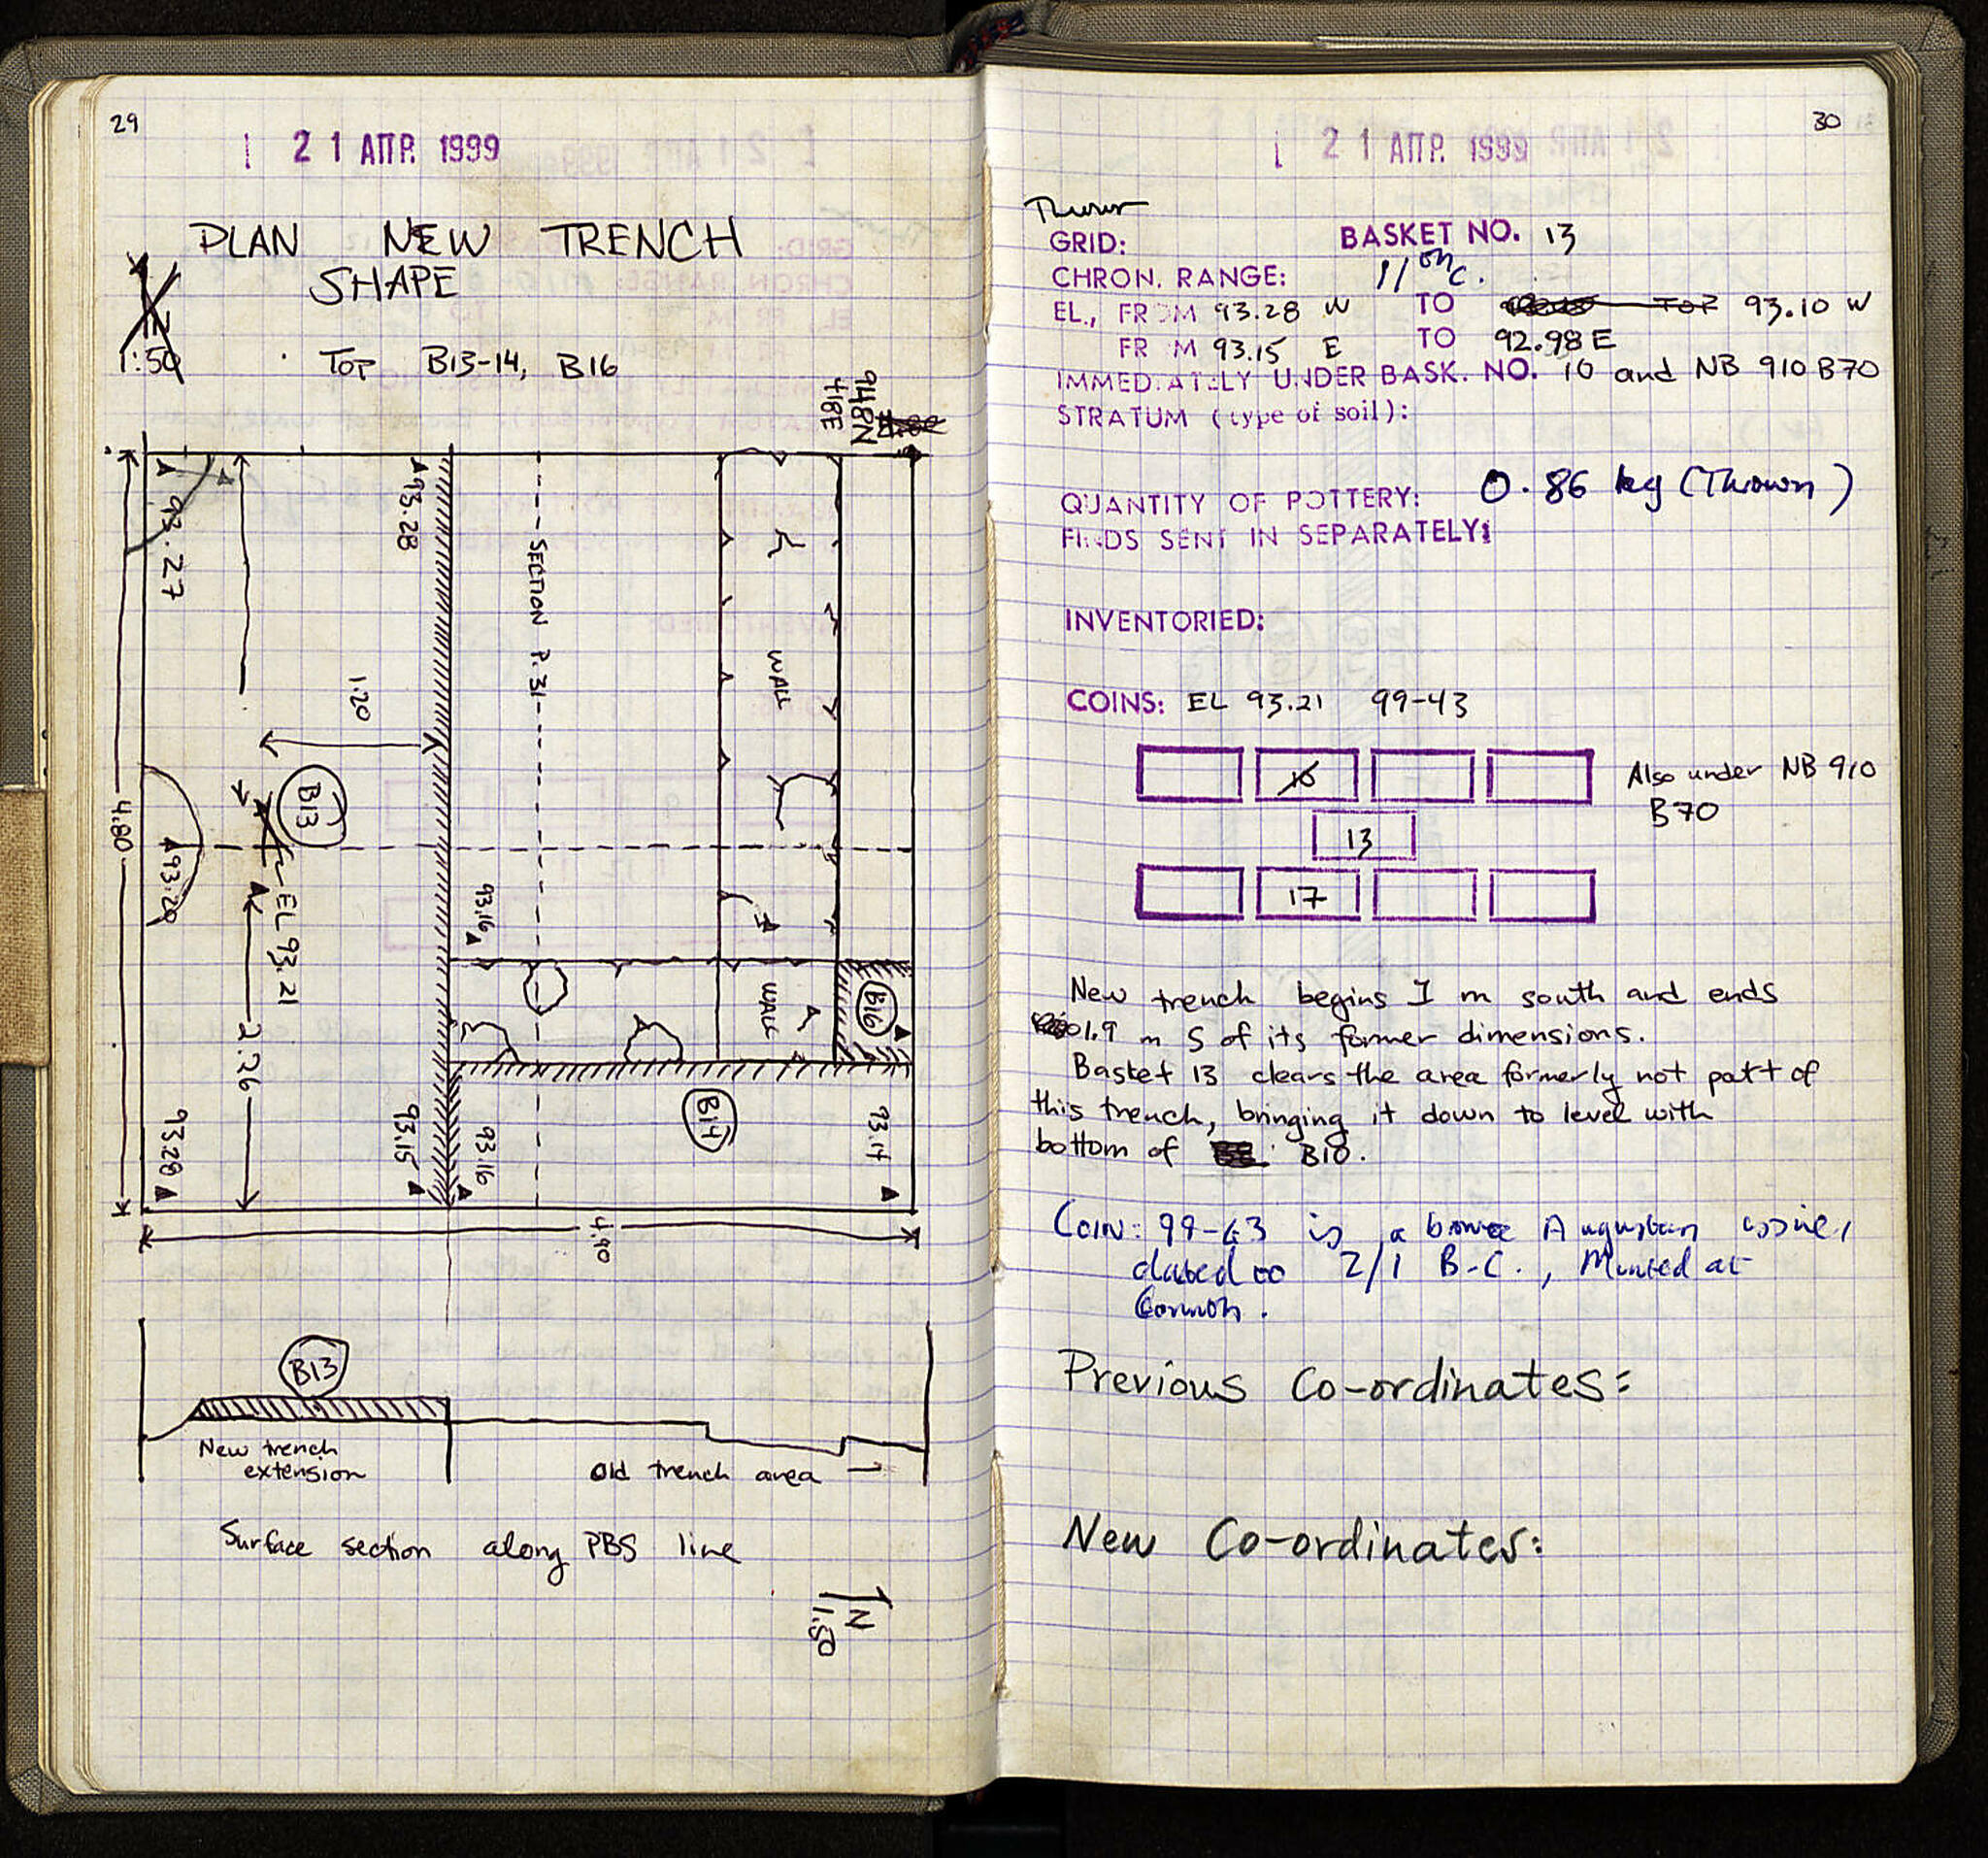 29
21 ΑΠΡ. 1999
PLAN NEW TRENCH
SHAPE
N
1:50
TOP B13-14, B16
948N
418E
93.27
93.28
SECTION P. 31
WALL
1.20
B13
4.80
93.20
EL 93.21
93.16
2.26
WALL
B16
B14
93.28
93.15
93.16
93.14
4.90
B13
New trench
extension
Old trench area
Surface section along PBS line
N
1:50
30
21 ΑΠΡ. 1999
Thrown
GRID: BASKET NO. 13
CHRON. RANGE: 11th c.
EL., FROM 93.28 W TO 93.10 W
FROM 93.15 E TO 92.98 E
IMMEDIATELY UNDER BASK. NO. 10 and NB 910 B70
STRATUM (type of soil):
QUANTITY OF POTTERY: 0.86 kg (Thrown)
FINDS SENT IN SEPARATELY:
INVENTORIED:
COINS: EL 93.21 99-43
Also under NB 910
B70
13
17
New trench begins 1 m south and ends
1.9 m S of its former dimensions.
Basket 13 clears the area formerly not part of
this trench, bringing it down to level with
bottom of B10.
COIN: 99-43 is a bronze Augustan issue,
dated to 2/1 B.C., Minted at
Corinth.
Previous Co-ordinates:
New Co-ordinates: